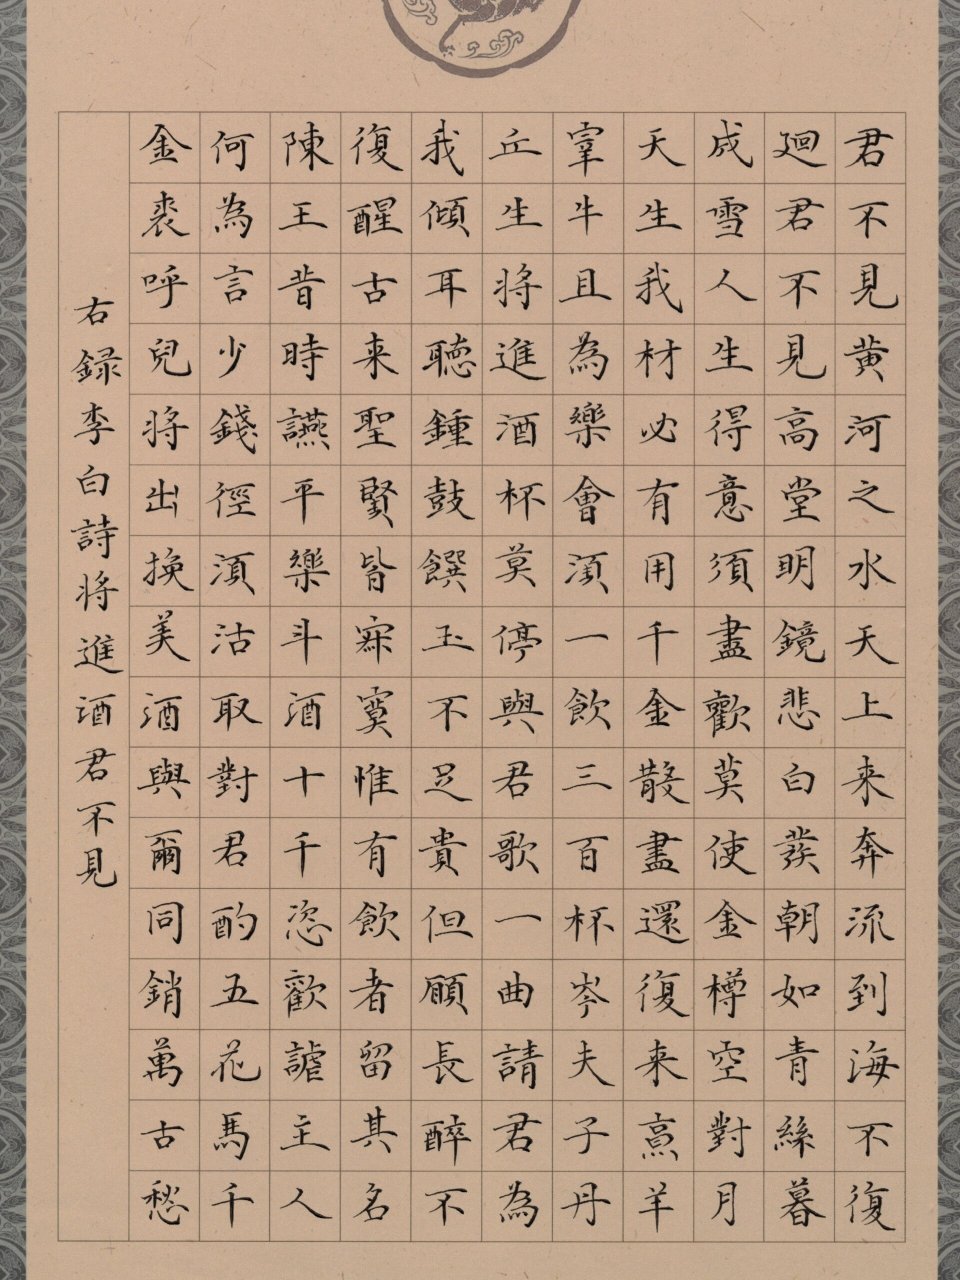 君不見黃河之水天上来奔流到海不復
廻君不見高堂明鏡悲白髮朝如青絲暮
成雪人生得意須盡歡莫使金樽空對月
天生我材必有用千金散盡還復来烹羊
宰牛且為樂會須一飲三百杯岑夫子丹
丘生將進酒杯莫停與君歌一曲請君為
我傾耳聽鍾鼓饌玉不足貴但願長醉不
復醒古来聖賢皆寂寞惟有飲者留其名
陳王昔時讌平樂斗酒十千恣歡謔主人
何為言少錢徑須沽取對君酌五花馬千
金裘呼兒將出換美酒與爾同銷萬古愁
右録李白詩將進酒君不見